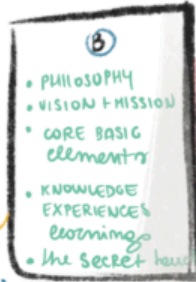 B
• PHILOSOPHY
• VISION + MISSION
• CORE BASIC
elements
• KNOWLEDGE
EXPERIENCES
learnings
• the secret